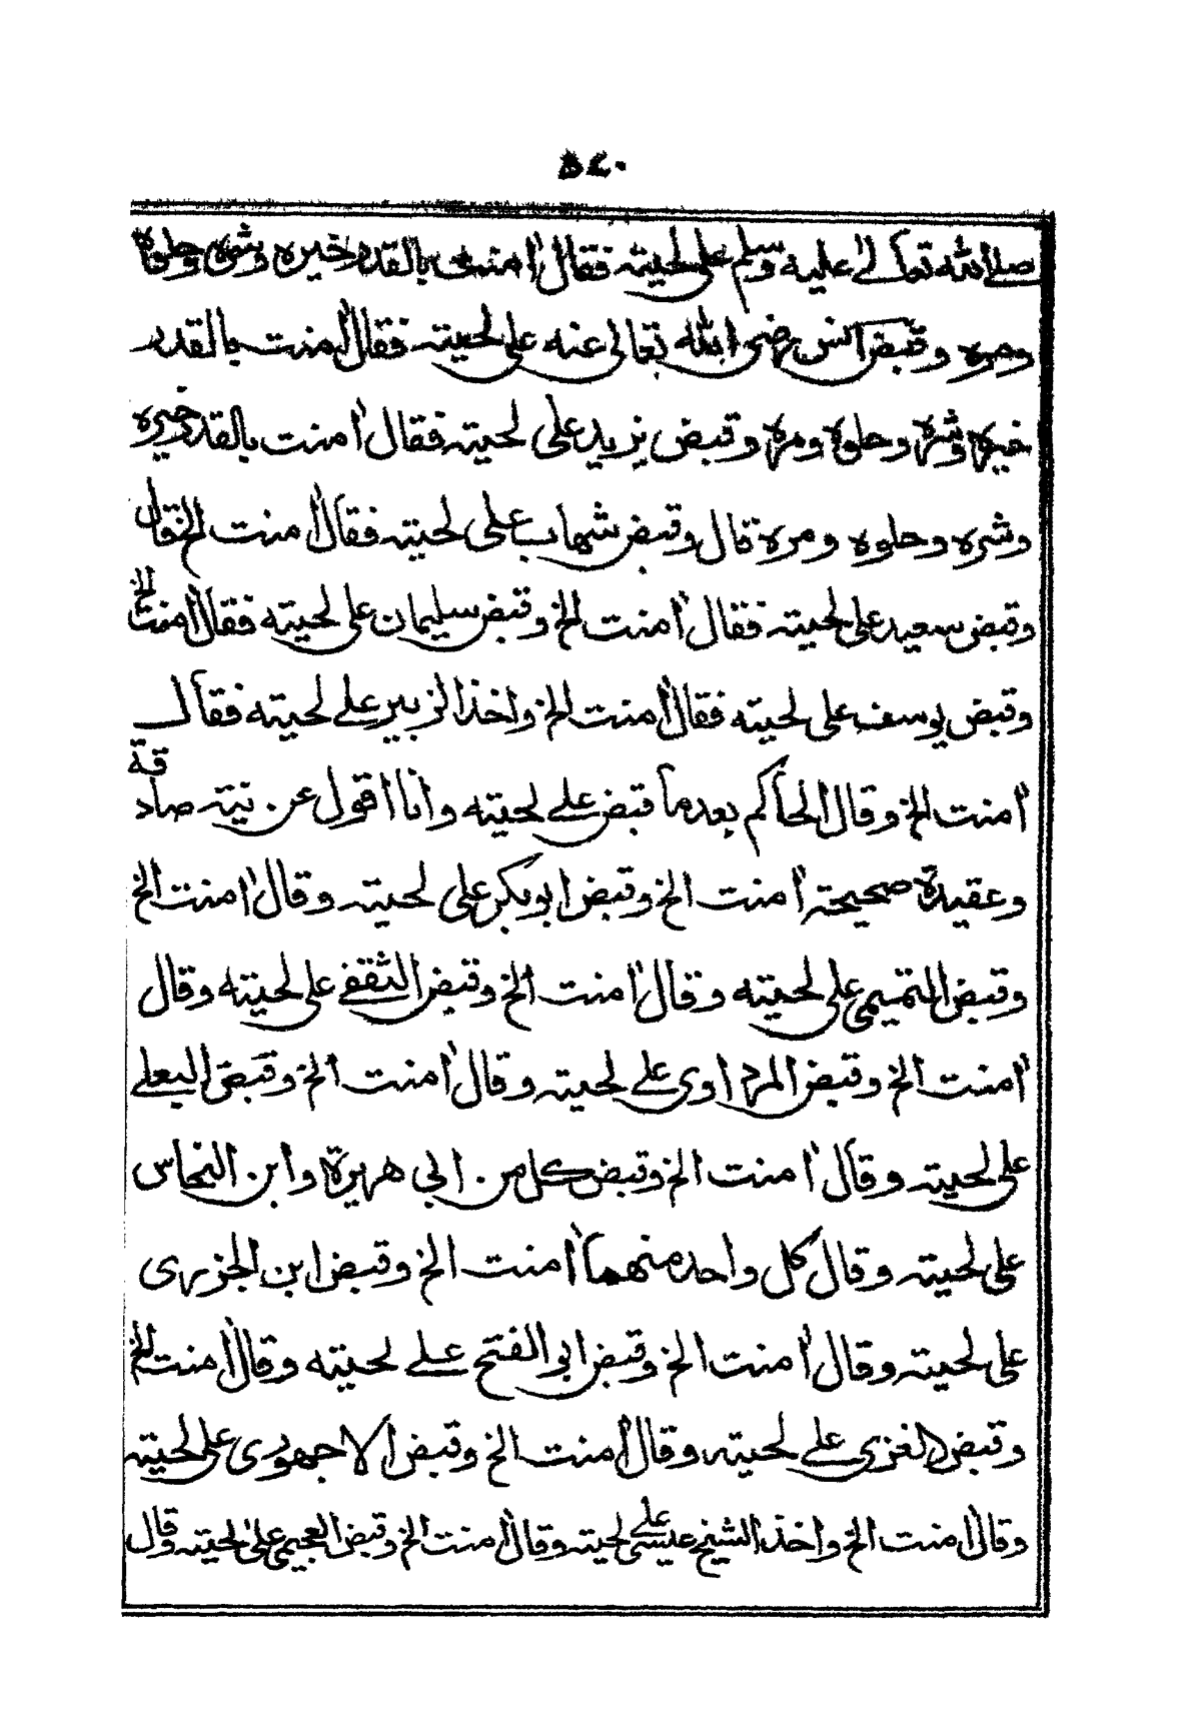 ٥٤٠
صلى الله تعالى عليه وسلم على لحيته فقال اٰمنت بالقدر خيره وشره وحلوه
ومره وقبض انس رضى الله تعالى عنه على لحيته فقال اٰمنت بالقدر
خيره وشره وحلوه ومره وقبض يزيد على لحيته فقال اٰمنت بالقدر خيره
وشره وحلوه ومره قال وقبض شهاب على لحيته فقال اٰمنت الخ قال
وقبض سعيد على لحيته فقال اٰمنت الخ وقبض سليمان على لحيته فقال اٰمنت الخ
وقبض يوسف على لحيته فقال اٰمنت الخ واخذ الزبير على لحيته فقال
اٰمنت الخ وقال الحاكم بعد ما قبض على لحيته وانا اقول عن نية صادقة
وعقيدة صحيحة اٰمنت الخ وقبض ابو بكر على لحيته وقال اٰمنت الخ
وقبض التميمى على لحيته وقال اٰمنت الخ وقبض الثقفى على لحيته وقال
اٰمنت الخ وقبض المرداوى على لحيته وقال اٰمنت الخ وقبض البعلى
على لحيته وقال اٰمنت الخ وقبض كل من ابى هريرة وابن النحاس
على لحيته وقال كل واحد منهما اٰمنت الخ وقبض ابن الجزرى
على لحيته وقال اٰمنت الخ وقبض ابو الفتح على لحيته وقال اٰمنت الخ
وقبض الغزى على لحيته وقال اٰمنت الخ وقبض الاجهورى على لحيته
وقال اٰمنت الخ واخذ الشيخ عيسى على لحيته وقال اٰمنت الخ وقبض العجيمى على لحيته وقال